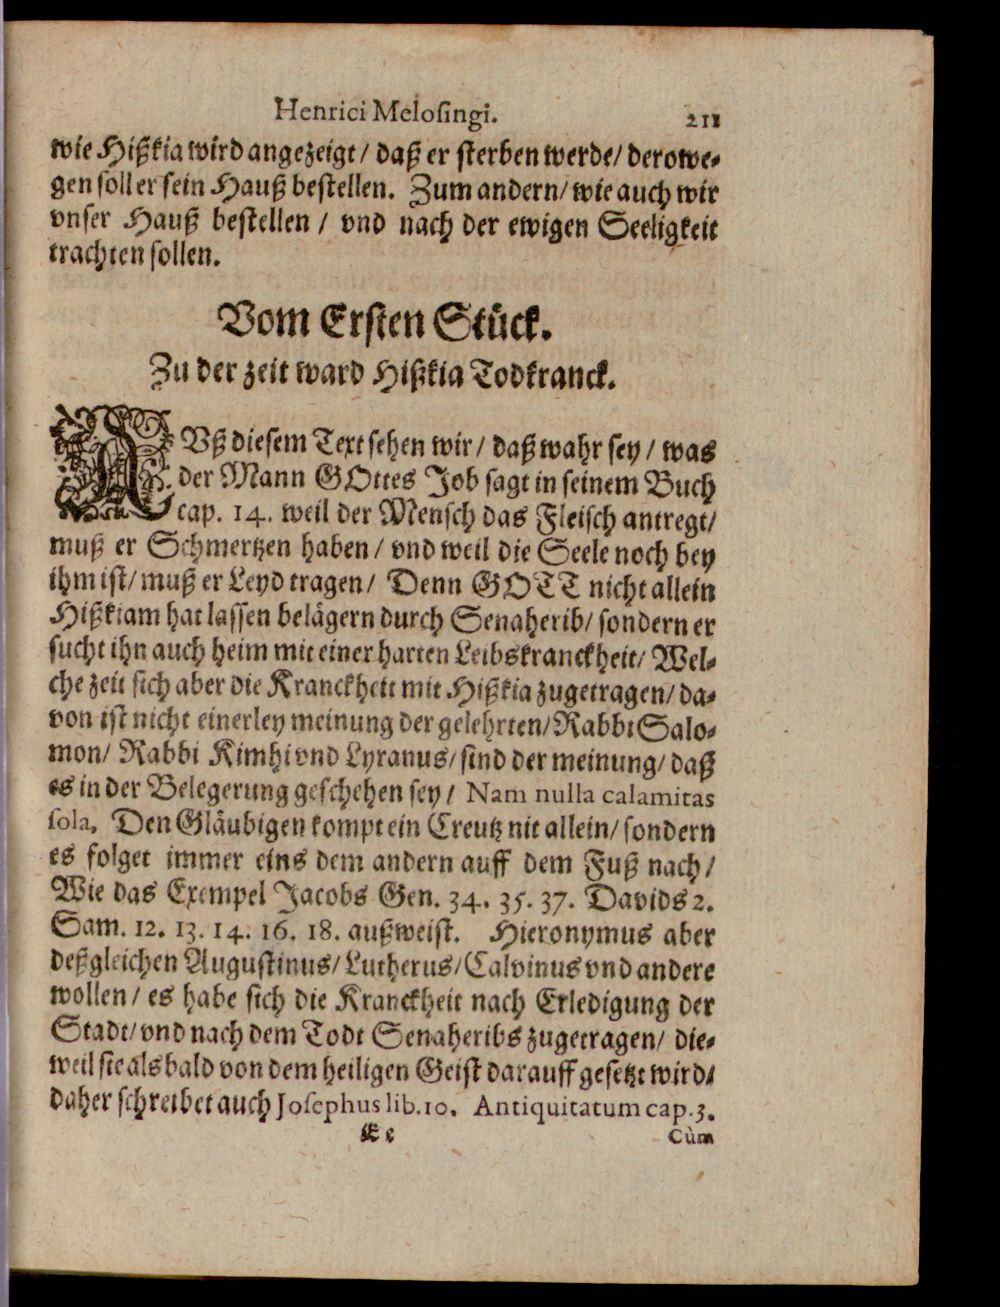 Henrici Melosingi. 211
wie Hißkia wird angezeigt / daß er sterben werde / derowe-
gen soll er sein Hauß bestellen. Zum andern / wie auch wir
vnser Hauß bestellen / vnd nach der ewigen Seeligkeit
trachten sollen.
Vom Ersten Stück.
Zu der zeit ward Hißkia Todkranck.
AVß diesem Text sehen wir / daß wahr sey / was
der Mann GOttes Job sagt in seinem Buch
cap. 14. weil der Mensch das Fleisch antregt /
muß er Schmertzen haben / vnd weil die Seele noch bey
ihm ist / muß er Leyd tragen / Denn GOTT nicht allein
Hißkiam hat lassen belägern durch Senaherib / sondern er
sucht ihn auch heim mit einer harten Leibskranckheit / Wel-
che zeit sich aber die Kranckheit mit Hißkia zugetragen / da-
von ist nicht einerley meinung der gelehrten / Rabbi Salo-
mon / Rabbi Kimhi vnd Lyranus / sind der meinung / daß
es in der Belegerung geschehen sey / Nam nulla calamitas
sola. Den Gläubigen kompt ein Creutz nit allein / sondern
es folget immer eins dem andern auff dem Fuß nach /
Wie das Exempel Jacobs Gen. 34. 35. 37. Davids 2.
Sam. 12. 13. 14. 16. 18. außweist. Hieronymus aber
deßgleichen Augustinus / Lutherus / Calvinus vnd andere
wollen / es habe sich die Kranckheit nach Erledigung der
Stadt / vnd nach dem Todt Senaheribs zugetragen / die-
weil sie als bald von dem heiligen Geist darauff gesetzt wird /
daher schreibet auch Josephus lib. 10. Antiquitatum cap. 3.
Ee Cùm